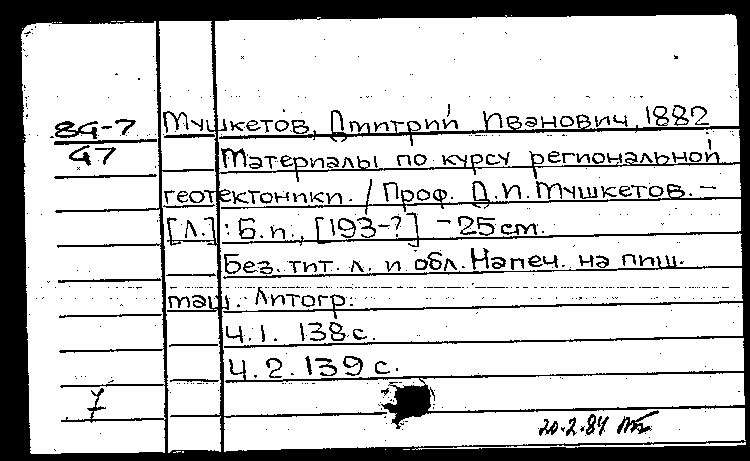 84-7 Мушкетов, Дмитрий Иванович, 1882
47 Материалы по курсу региональной
геотектоники. / Проф. Д.И.Мушкетов. –
[Л.] : Б.и., [193-?] – 25 см.
Без. тит. л. и обл. Напеч. на пиш.
маш. Литогр.
Ч.1. 138 с.
Ч.2. 139 с.
7
20.2.84